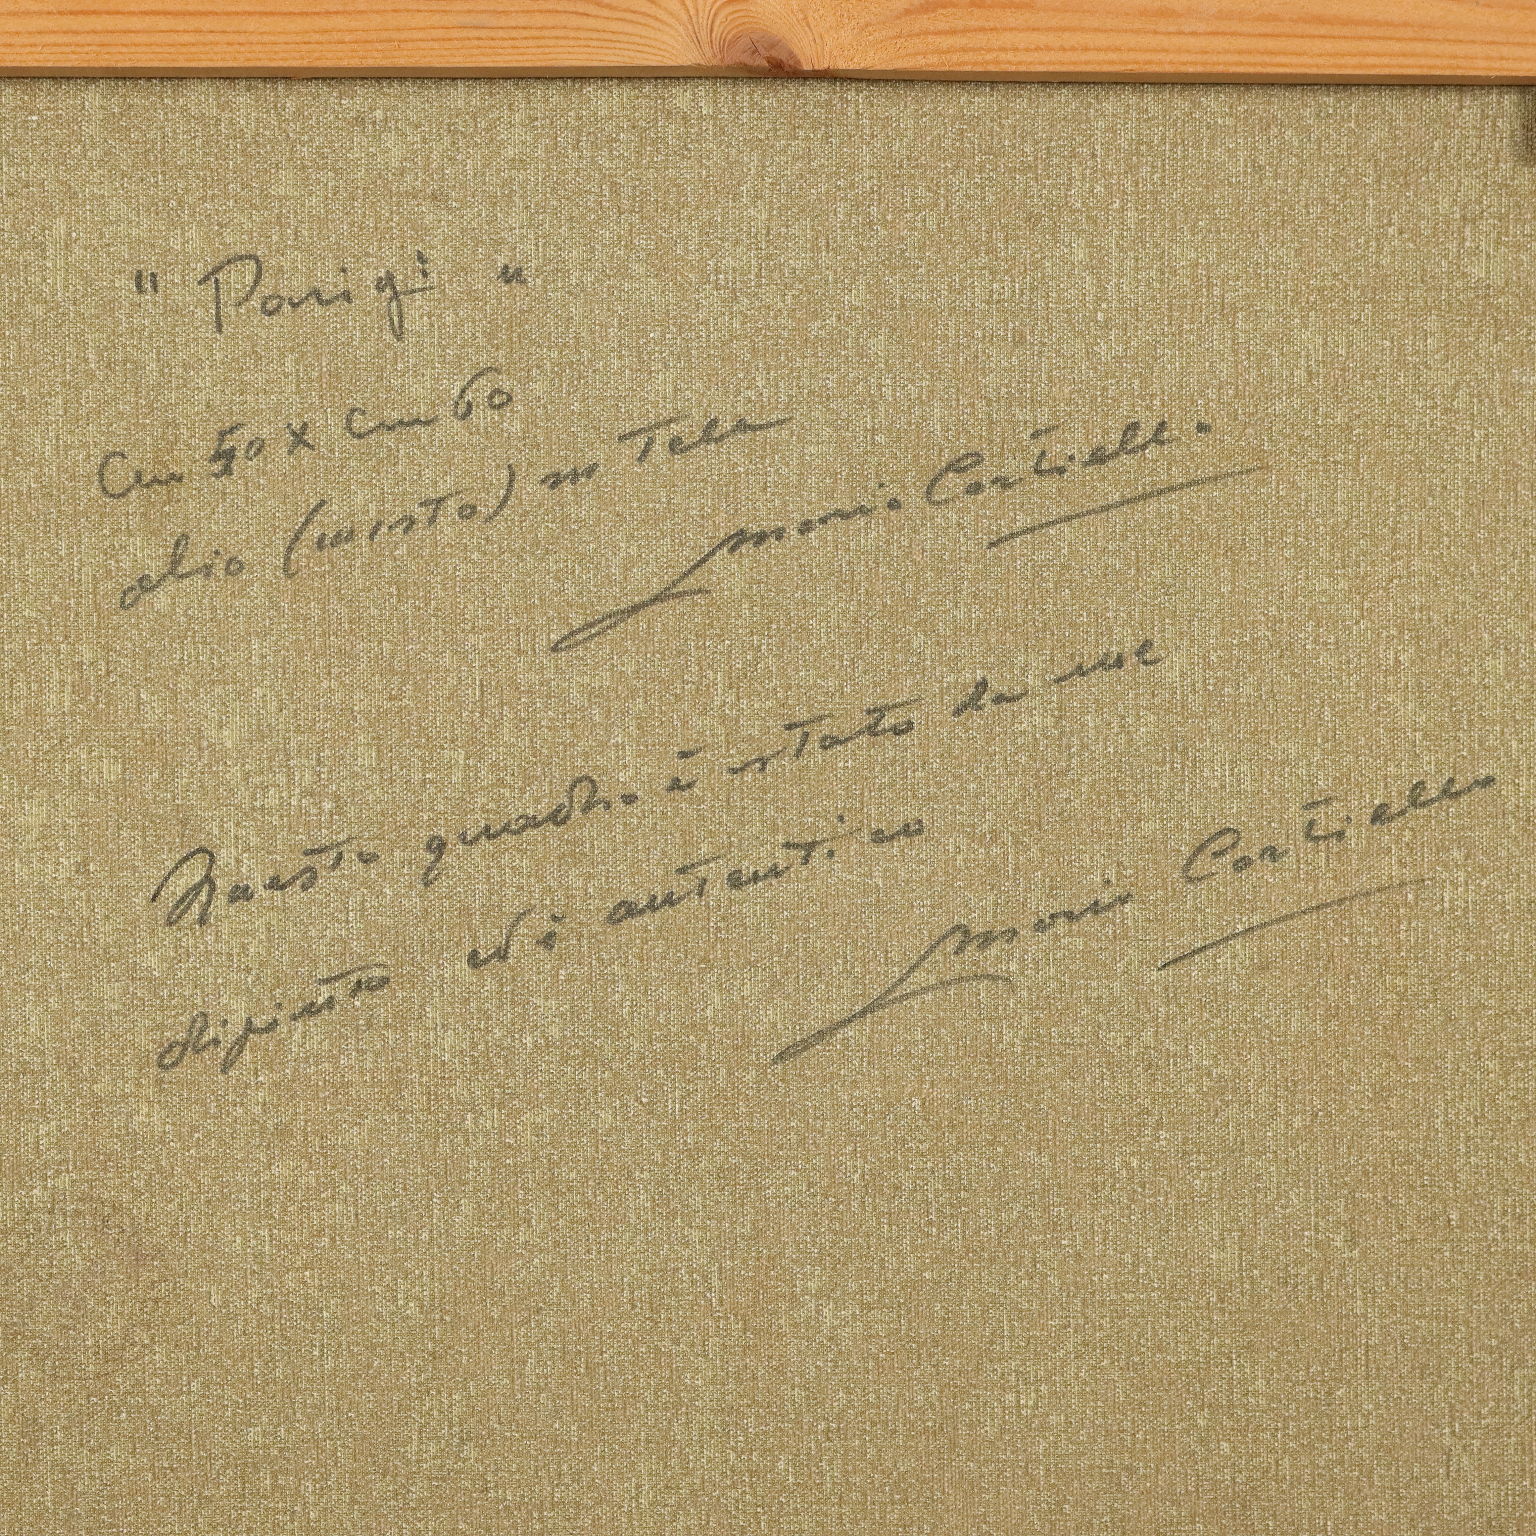 " Parigi "
Cm 50 x Cm 60
olio (misto) su Tela
Mario Cortiello
Questo quadro è stato da me
dipinto ed è autentico
Mario Cortiello